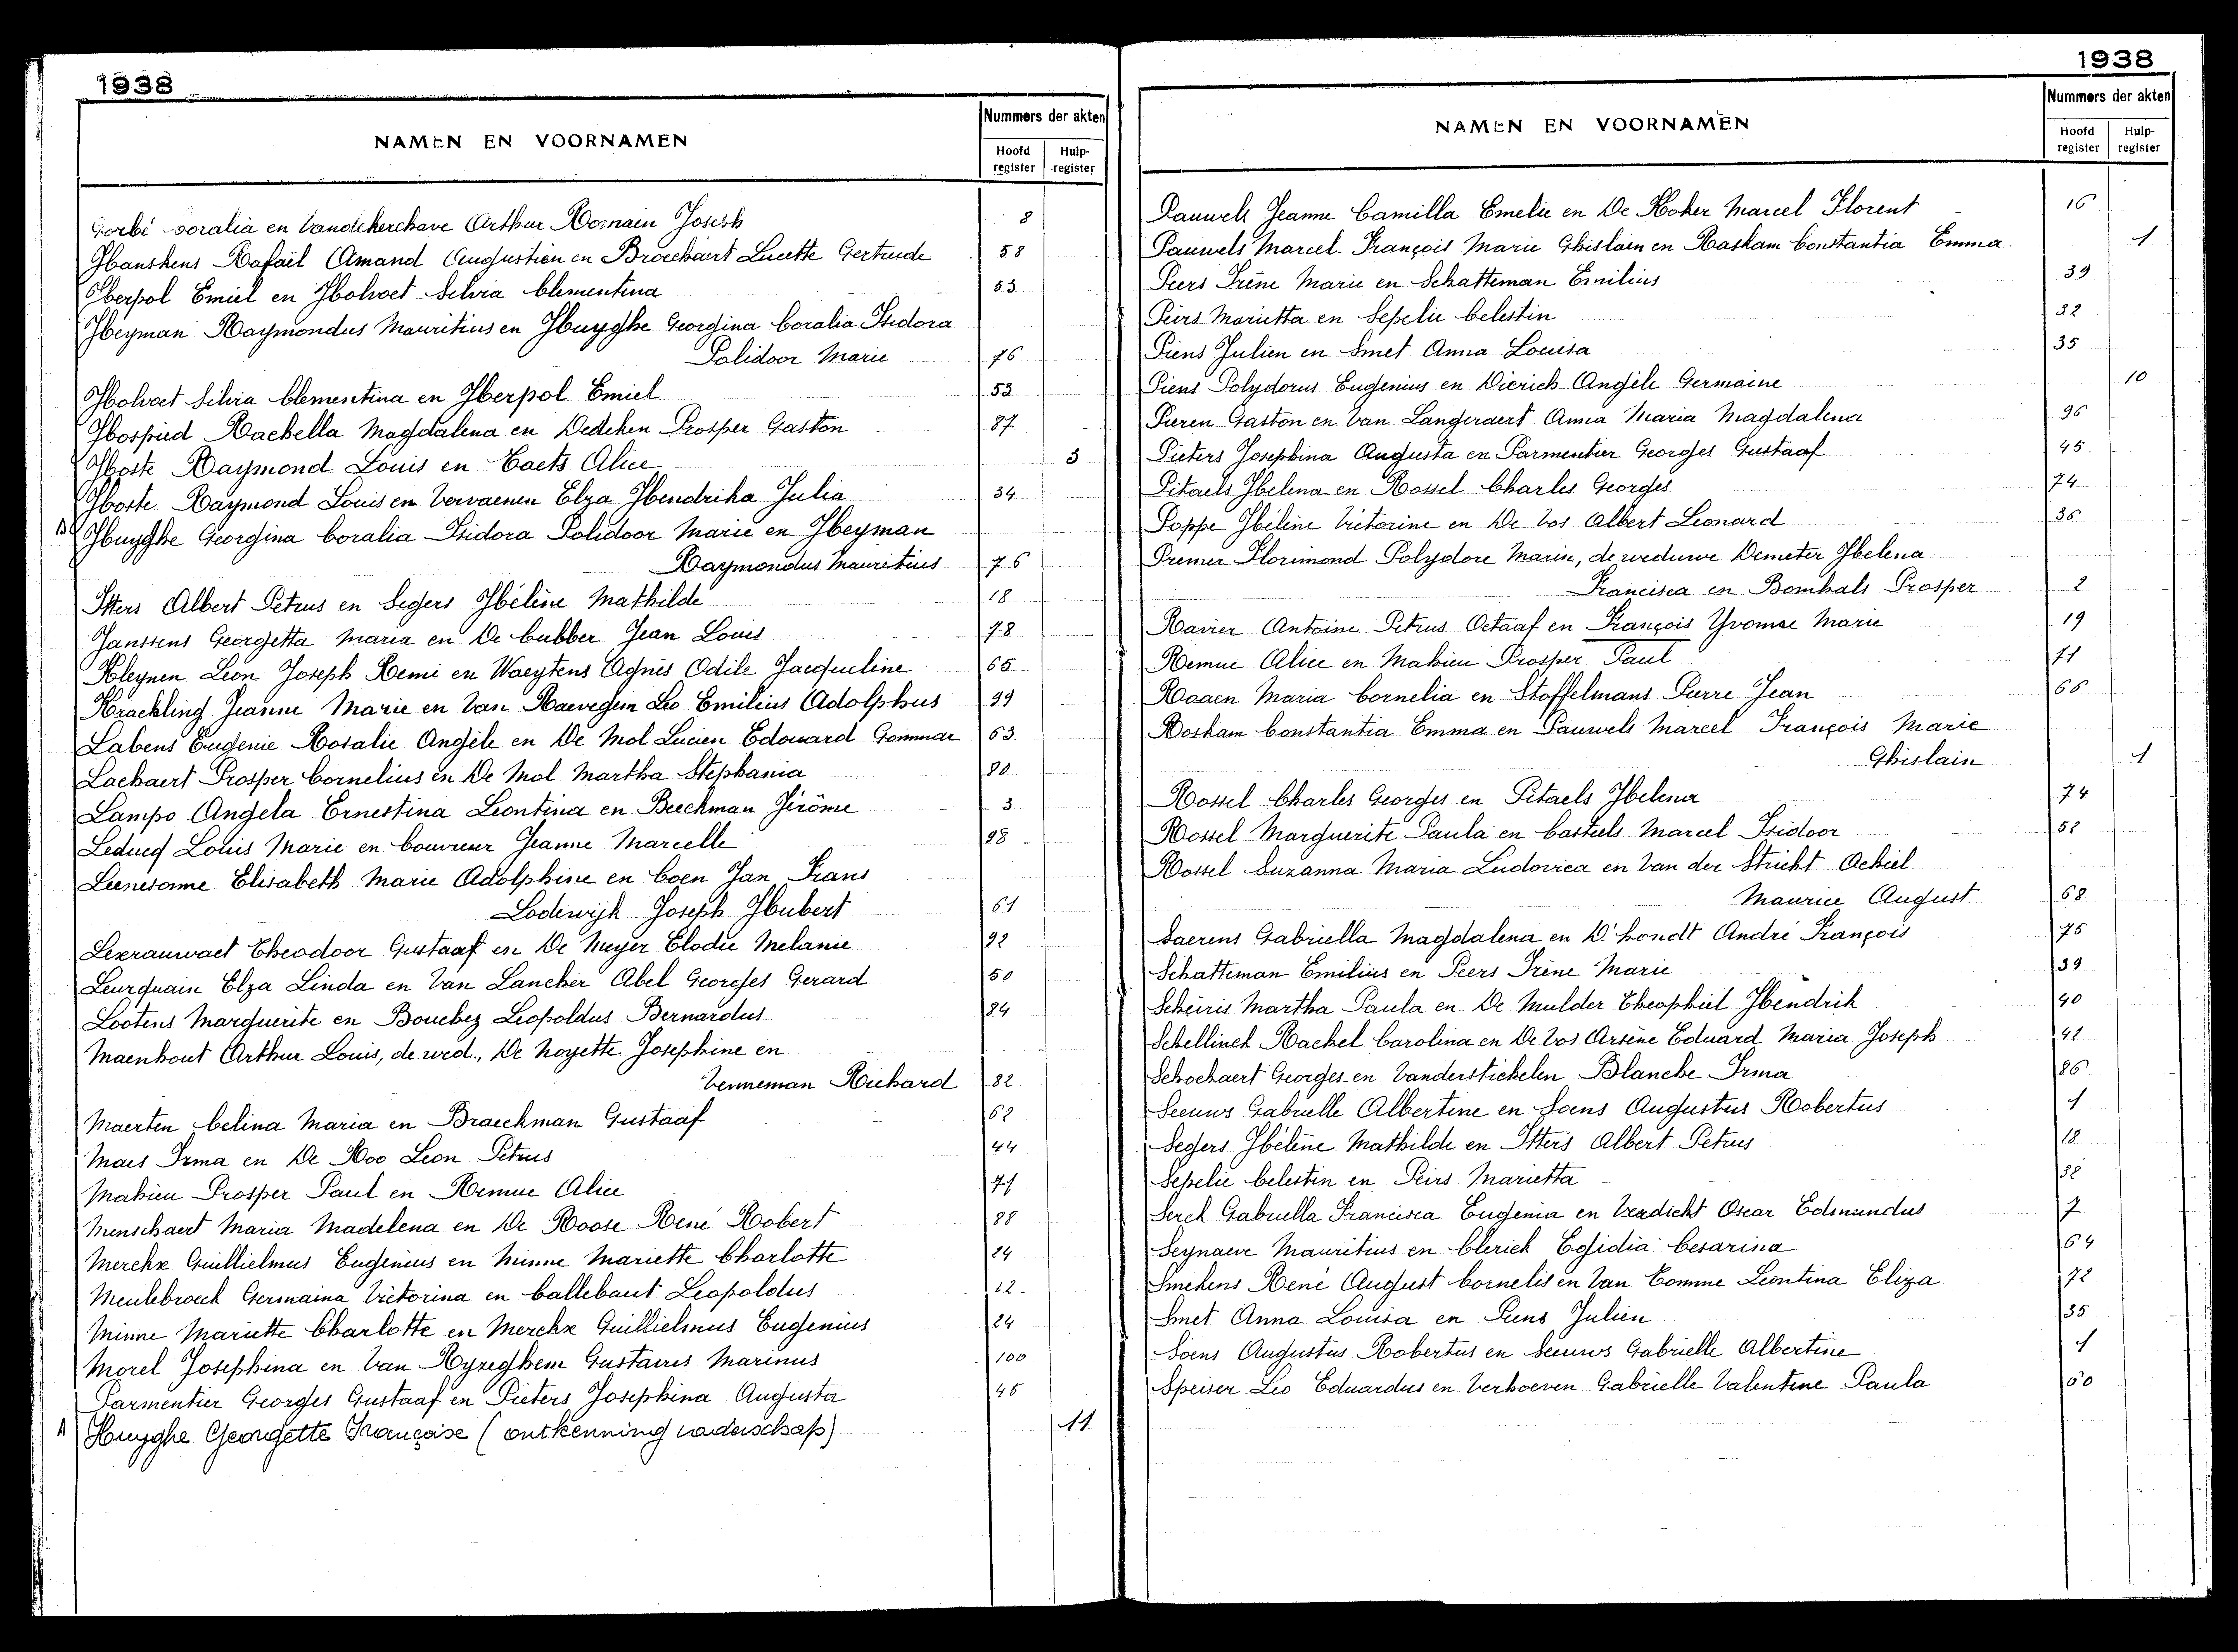 1938
NAMEN EN VOORNAMEN
Nummers der akten
Hoofd register
Hulp- register
Gorbi Coralia en Vandekerchave Arthur Romain Joseph 8
Hanskens Rafaël Amand Augustien en Broeckaert Lucette Gertrude 58
Herpol Emiel en Holvoet Silvia Clementina 53
Heyman Raymondus Mauritius en Huyghe Georgina Coralia Isidora
Polidoor Marie 76
Holvoet Silvia Clementina en Herpol Emiel 53
Hospied Rachella Magdalena en Dedeken Prosper Gaston 87
Hoste Raymond Louis en Caets Alice 3
Hoste Raymond Louis en Vervaenen Elza Hendrika Julia 34
Huyghe Georgina Coralia Isidora Polidoor Marie en Heyman
Raymondus Mauritius 76
Itters Albert Petrus en Segers Hélène Mathilde 18
Janssens Georgetta Maria en De Cubber Jean Louis 78
Kleynen Léon Joseph Remi en Waeytens Agnès Odile Jacqueline 65
Krackling Jeanne Marie en Van Raevegem Leo Emilius Adolphus 99
Labens Eugenie Rosalie Angèle en De Mol Lucien Edouard Gommar 63
Lackaert Prosper Cornelius en De Mol Martha Stephania 80
Lampo Angela Ernestina Leontina en Beeckman Jérôme 3
Leducq Louis Marie en Couvreur Jeanne Marcelle 98
Leenesonne Elisabeth Marie Adolphine en Coen Jan Frans
Lodewijk Joseph Hubert 61
Lexrauwaet Theodoor Gustaaf en De Meyer Elodie Melanie 92
Leurquain Elza Linda en Van Lancker Abel Georges Gerard 50
Lootens Marguerite en Bouchez Leopoldus Bernardus 84
Maenhout Arthur Louis, de wed., De Noyette Josephine en
Venneman Richard 82
Maerten Celina Maria en Braeckman Gustaaf 62
Maes Irma en De Roo Leon Petrus 44
Mahieu Prosper Paul en Remue Alice 71
Menschaert Maria Madelena en De Roose René Robert 88
Merckx Guillielmus Eugenius en Minne Mariette Charlotte 24
Meulebroeck Germaina Victorina en Callebaut Leopoldus 12
Minne Mariette Charlotte en Merckx Guillielmus Eugenius 24
Morel Josephina en Van Hyzeghem Gustavus Marinus 100
Parmentier Georges Gustaaf en Pieters Josephina Augusta 45
Huyghe Georgette Françoise (ontkenning vaderschap) 11
1938
NAMEN EN VOORNAMEN
Nummers der akten
Hoofd register
Hulp- register
Pauwels Jeanne Camilla Emelie en De Koker Marcel Florent 16
Pauwels Marcel François Marie Ghislain en Roskam Constantia Emma. 1
Peers Irène Marie en Schatteman Emilius 39
Peirs Marietta en Sepelie Celestin 32
Piens Julien en Smet Anna Louisa 35
Piens Polydorus Eugenius en Dierick Angèle Germaine 10
Pieren Gaston en Van Langeraert Anna Maria Magdalena 96
Pieters Josephina Augusta en Parmentier Georges Gustaaf 45.
Pitaels Helena en Rossel Charles Georges 74
Poppe Hélène Victorine en De Vos Albert Leonard 36
Premer Florimond Polydore Marin, de weduwe Demeter Helena
Francisca en Bomhals Prosper 2
Ravier Antoine Petrus Octaaf en François Yvonne Marie 19
Remue Alice en Mahieu Prosper Paul 71
Rogaen Maria Cornelia en Stoffelmans Pierre Jean 66
Roskam Constantia Emma en Pauwels Marcel François Marie
Ghislain 1
Rossel Charles Georges en Pitaels Helena 74
Rossel Marguerite Paula en Casteels Marcel Isidoor 52
Rossel Suzanna Maria Ludovica en Van der Stricht Achiel
Maurice August 68
Saerens Gabriella Magdalena en D'hondt André François 75
Schatteman Emilius en Peers Irène Marie 39
Scheiris Martha Paula en De Mulder Theophiel Hendrik 40
Schellinck Rachel Carolina en De Vos Arsène Eduard Maria Joseph 41
Schockaert Georges en Vanderstichelen Blanche Irma 86
Seeuws Gabrielle Albertine en Soens Augustus Robertus 1
Segers Hélène Mathilde en Itters Albert Petrus 18
Sepelie Celestin en Peirs Marietta 32
Serck Gabriella Francisca Eugenia en Veradicht Oscar Edmundus 7
Seynaeve Mauritius en Clerick Egidia Cesarina 64
Smekens René August Cornelis en Van Comme Leontina Eliza 72
Smet Anna Louisa en Piens Julien 35
Soens Augustus Robertus en Seeuws Gabrielle Albertine 1
Speiser Leo Eduardus en Verhoeven Gabrielle Valentine Paula 60